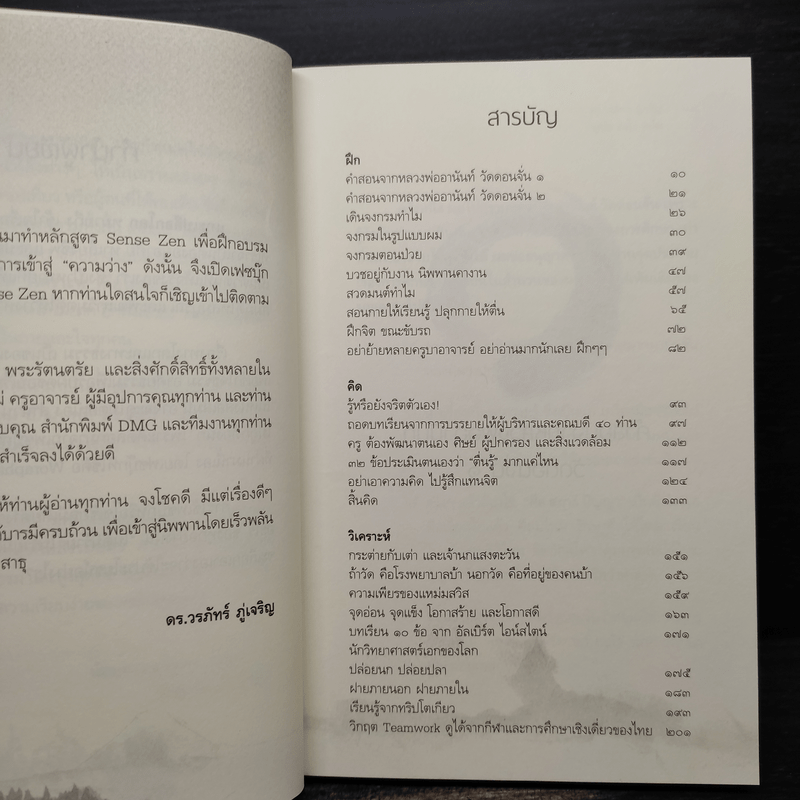 นมาทำหลักสูตร Sense Zen เพื่อฝึกอบรม
การเข้าสู่ “ความว่าง” ดังนั้น จึงเปิดเฟซบุ๊ก
se Zen หากท่านใดสนใจก็เชิญเข้าไปติดตาม
พระรัตนตรัย และสิ่งศักดิ์สิทธิ์ทั้งหลายใน
ครูอาจารย์ ผู้มีอุปการคุณทุกท่าน และท่าน
บคุณ สำนักพิมพ์ DMG และทีมงานทุกท่าน
สำเร็จลงได้ด้วยดี
ห้ท่านผู้อ่านทุกท่าน จงโชคดี มีแต่เรื่องดีๆ
บารมีครบถ้วน เพื่อเข้าสู่นิพพานโดยเร็วพลัน
สาธุ
ดร.วรภัทร์ ภู่เจริญ
สารบัญ
ฝึก
คำสอนจากหลวงพ่ออานันท์ วัดดอนจั่น ๑ ๑๐
คำสอนจากหลวงพ่ออานันท์ วัดดอนจั่น ๒ ๒๑
เดินจงกรมทำไม ๒๖
จงกรมในรูปแบบผม ๓๐
จงกรมตอนป่วย ๓๙
บวชอยู่กับงาน นิพพานคางาน ๔๗
สวดมนต์ทำไม ๕๗
สอนกายให้เรียนรู้ ปลุกกายให้ตื่น ๖๕
ฝึกจิต ขณะขับรถ ๗๒
อย่าย้ายหลายครูบาอาจารย์ อย่าอ่านมากนักเลย ฝึกๆๆ ๘๒
คิด
รู้หรือยังจริตตัวเอง! ๙๓
ถอดบทเรียนจากการบรรยายให้ผู้บริหารและคณบดี ๔๐ ท่าน ๙๗
ครู ต้องพัฒนาตนเอง ศิษย์ ผู้ปกครอง และสิ่งแวดล้อม ๑๑๒
๓๒ ข้อประเมินตนเองว่า “ตื่นรู้” มากแค่ไหน ๑๑๗
อย่าเอาความคิด ไปรู้สึกแทนจิต ๑๒๔
สิ้นคิด ๑๓๓
วิเคราะห์
กระต่ายกับเต่า และเจ้านกแสงตะวัน ๑๕๑
ถ้าวัด คือโรงพยาบาลบ้า นอกวัด คือที่อยู่ของคนบ้า ๑๕๖
ความเพียรของแหม่มสวิส ๑๕๙
จุดอ่อน จุดแข็ง โอกาสร้าย และโอกาสดี ๑๖๓
บทเรียน ๑๐ ข้อ จาก อัลเบิร์ต ไอน์สไตน์ ๑๗๑
นักวิทยาศาสตร์เอกของโลก
ปล่อยนก ปล่อยปลา ๑๗๕
ฝายภายนอก ฝายภายใน ๑๘๓
เรียนรู้จากทริปโตเกียว ๑๙๓
วิกฤต Teamwork ดูได้จากกีฬาและการศึกษาเชิงเดี่ยวของไทย ๒๐๑